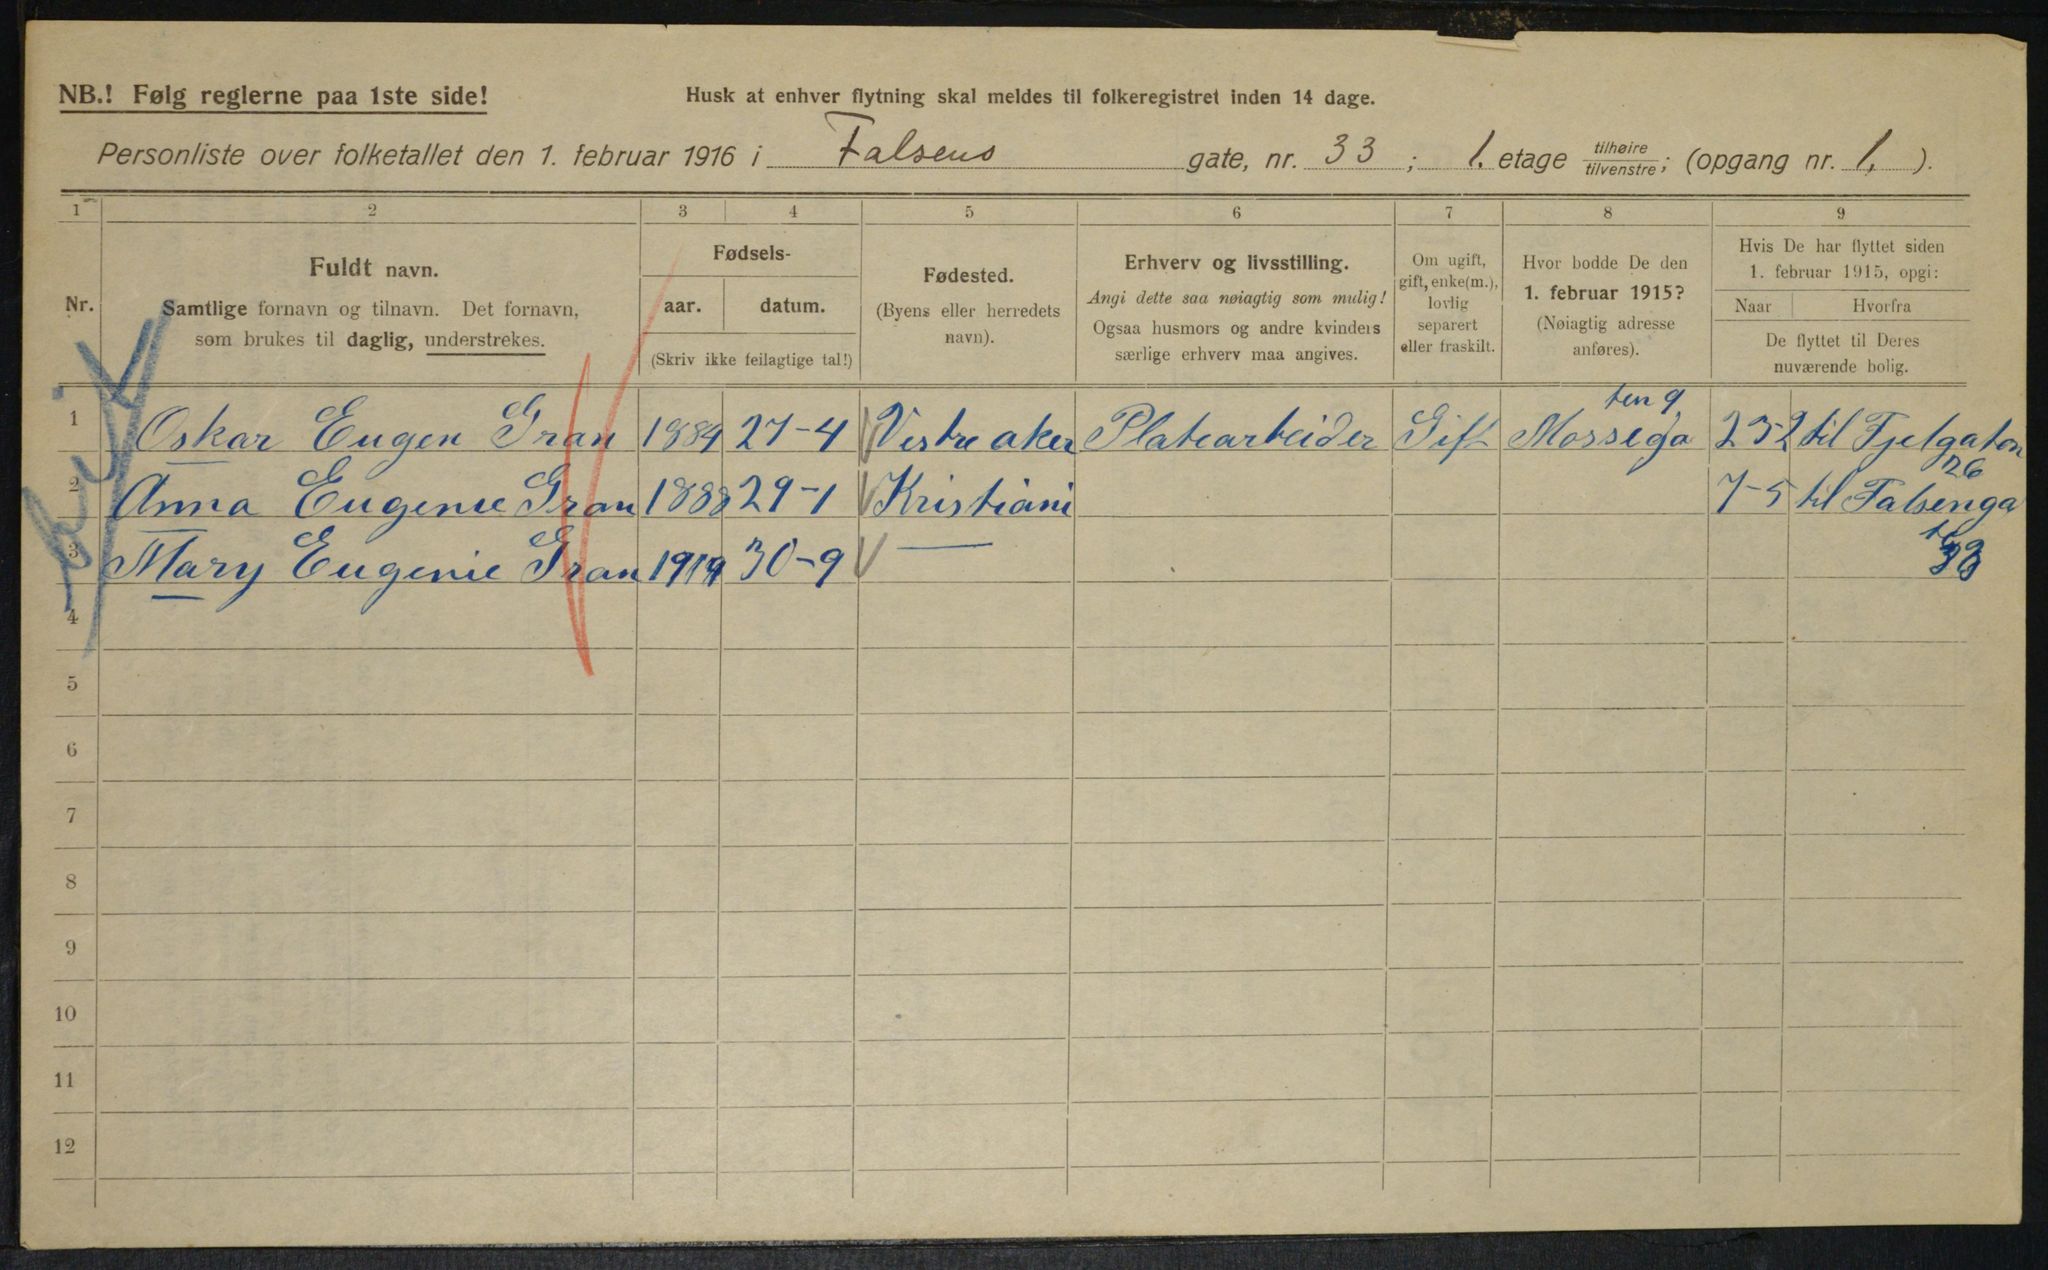 NB.! Følg reglerne paa 1ste side!
Husk at enhver flytning skal meldes til folkeregistret inden 14 dage.
Personliste over folketallet den 1. februar 1916 i Falsens gate, nr. 33; 1. etage tilhøire/tilvenstre; (opgang nr. 1, ).
1 2 3 4 5 6 7 8 9
Nr.
Fuldt navn.
Samtlige fornavn og tilnavn. Det fornavn,
som brukes til daglig, understrekes.
Fødsels-
aar. datum.
(Skriv ikke feilagtige tal!)
Fødested.
(Byens eller herredets
navn).
Erhverv og livsstilling.
Angi dette saa nøiagtig som mulig!
Ogsaa husmors og andre kvinders
særlige erhverv maa angives.
Om ugift,
gift, enke(m.),
lovlig
separert
eller fraskilt.
Hvor bodde De den
1. februar 1915?
(Nøiagtig adresse
anføres).
Hvis De har flyttet siden
1. februar 1915, opgi:
Naar Hvorfra
De flyttet til Deres
nuværende bolig.
1 Oskar Eugen Gran 1884 27-4 Vestre aker Platearbeider Gift Mossega ten 9 23-2 til Fjelgaten 26
2 Anna Eugenie Gran 1888 29-1 Kristiani 7-5 til Falsenga
3 Mary Eugenie Gran 1914 30-9 — 33
4
5
6
7
8
9
10
11
12